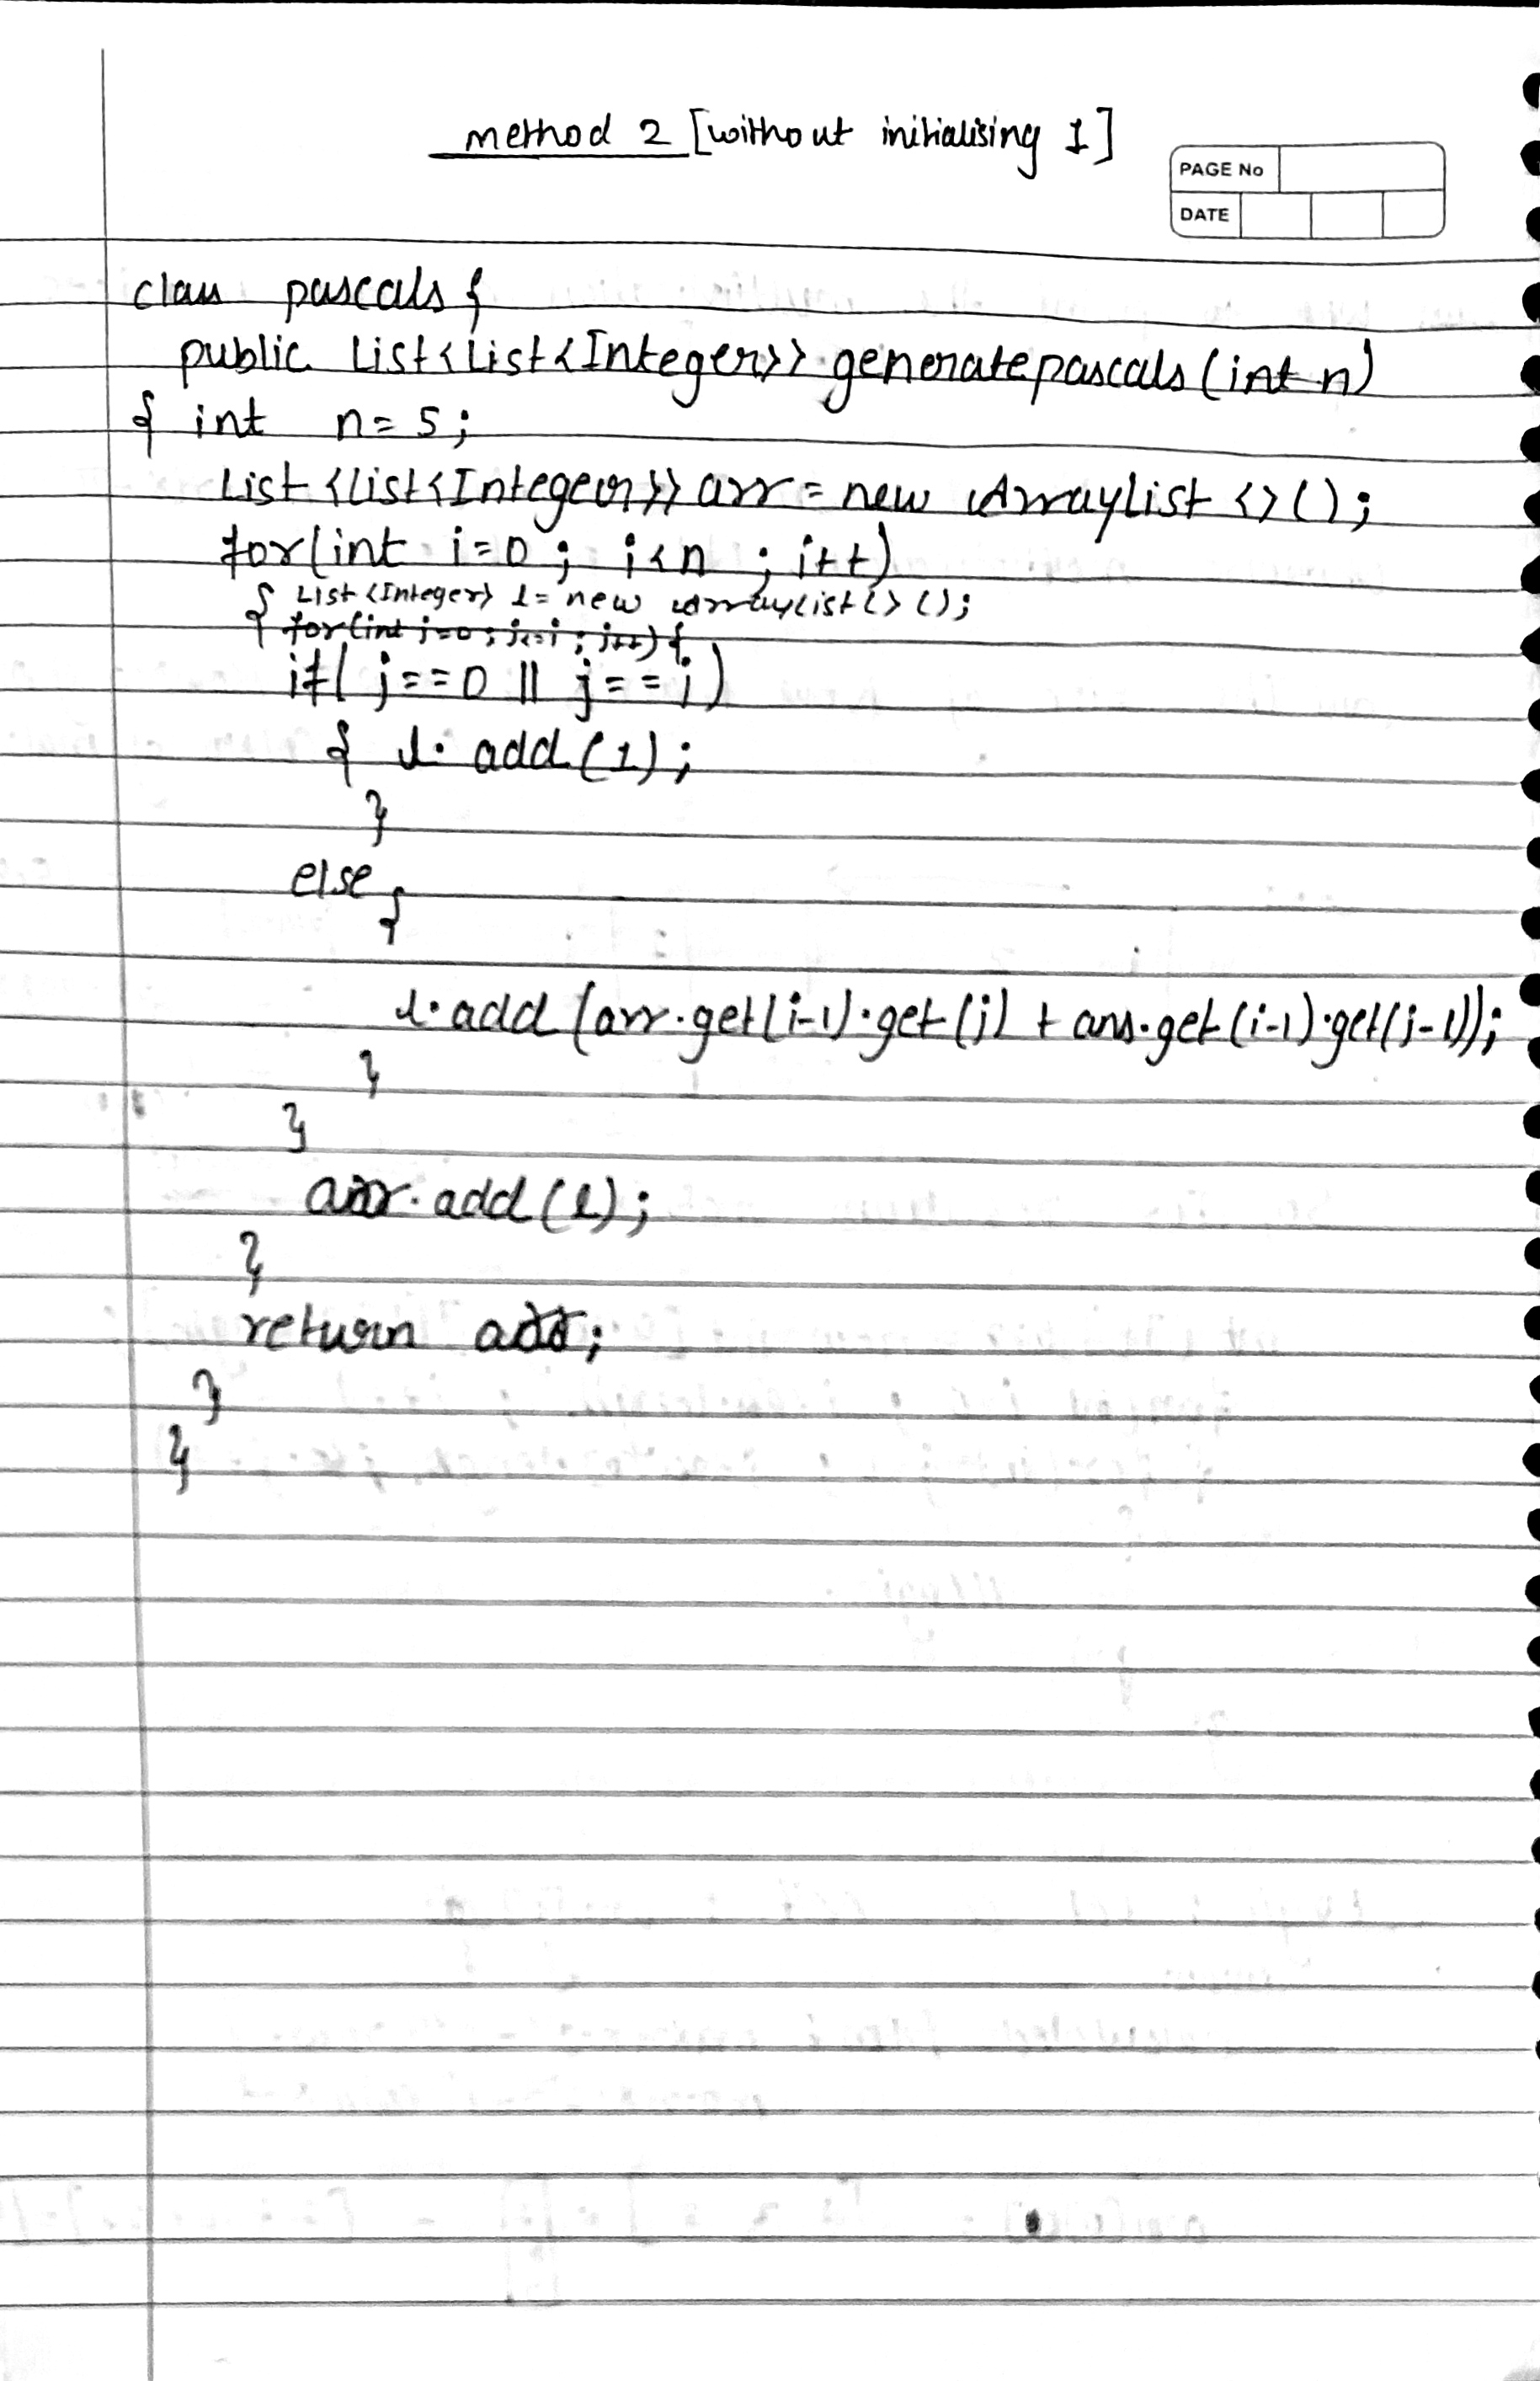 method 2 [without initialising 1]
PAGE No
DATE
class pascals {
public List<List<Integer>> generatepascals (int n)
{ int n = 5;
List <list<Integer>> arr = new ArrayList <> ();
for (int i=0 ; i<n ; i++)
{ List <Integer> l = new ArrayList <> ();
for (int j=0 ; j<=i ; j++) {
if ( j==0 || j==i )
{ l. add (1);
}
else {
l. add (arr.get(i-1).get(j) + ans.get(i-1).get(j-1));
}
}
arr. add (l);
}
return arr;
}
}